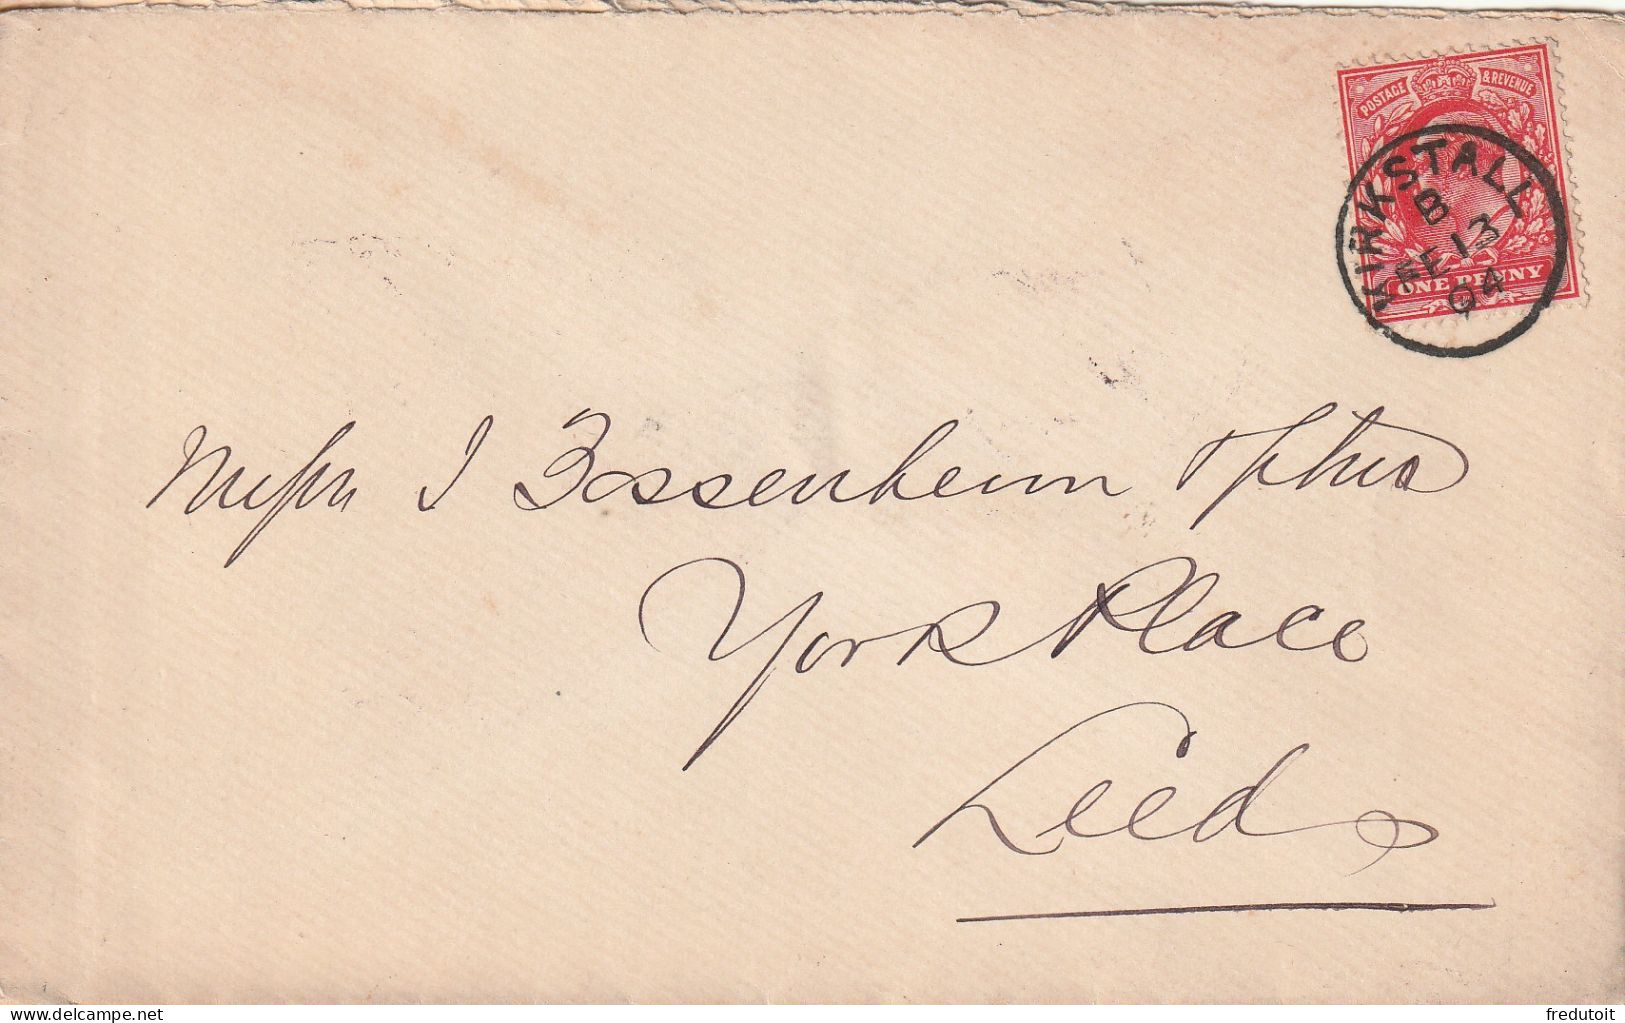 POSTAGE & REVENUE
KIRKSTALL
B
FE 13
04
ONE PENNY
Messrs J Bossenheim
York Place
Leeds
delcampe.net
fredutoit